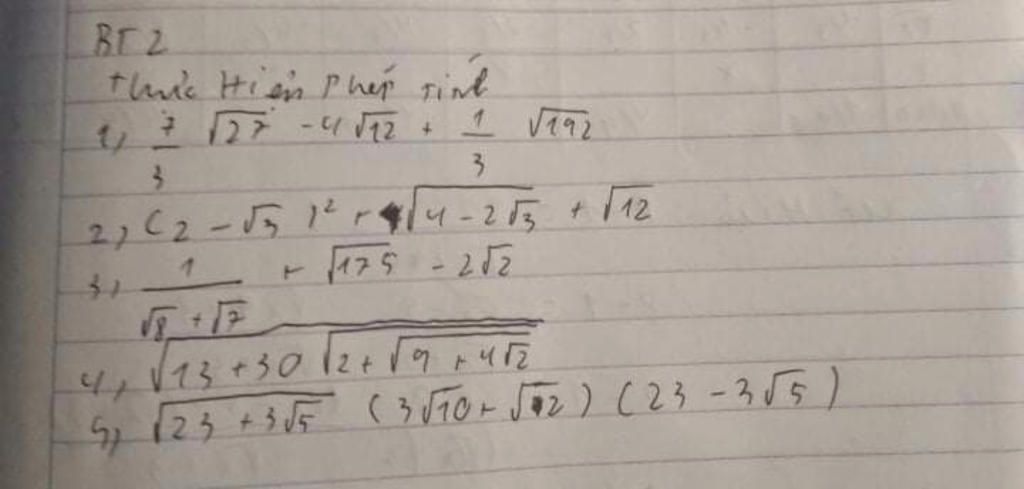 BT2
thực Hiện Phép tính
1, 7/3 √27 - 4√12 + 1/3 √192
2, (2 - √3)² + √(4 - 2√3) + √12
3, 1/(√8 + √7) + √175 - 2√2
4, √(13 + 30√(2 + √(9 + 4√2)))
5, √(23 + 3√5) (3√10 + √2) (23 - 3√5)